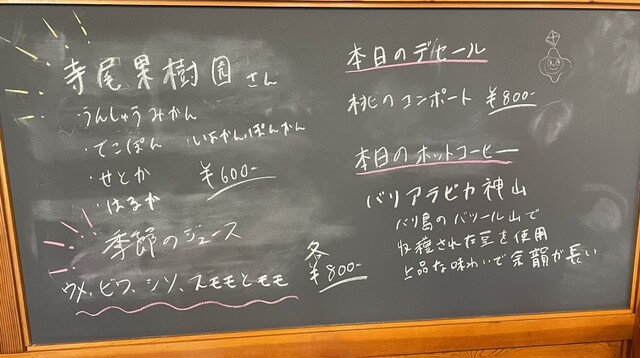 寺尾果樹園さん
・うんしゅうみかん
・でこぽん ・いよかん,ぽんかん
・せとか ¥600-
・はるか
季節のジュース
ウメ、ビワ、シソ、スモモとモモ
各¥800-
本日のデセール
桃のコンポート ¥800-
本日のホットコーヒー
バリアラビカ神山
バリ島のバツール山で
収穫された豆を使用
上品な味わいで余韻が長い